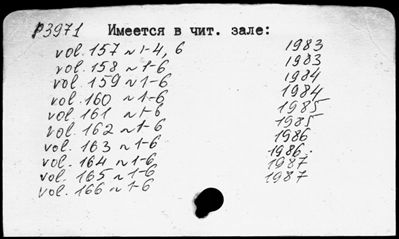 P3971 Имеется в чит. зале:
vol. 157 ~ 1-4, 6 1983
vol. 158 ~ 1-6 1983
vol. 159 ~ 1-6 1984
vol. 160 ~ 1-6 1984
vol. 161 ~ 1-6 1985
vol. 162 ~ 1-6 1985
vol. 163 ~ 1-6 1986
vol. 164 ~ 1-6 1986.
vol. 165 ~ 1-6 1987
vol. 166 ~ 1-6 1987